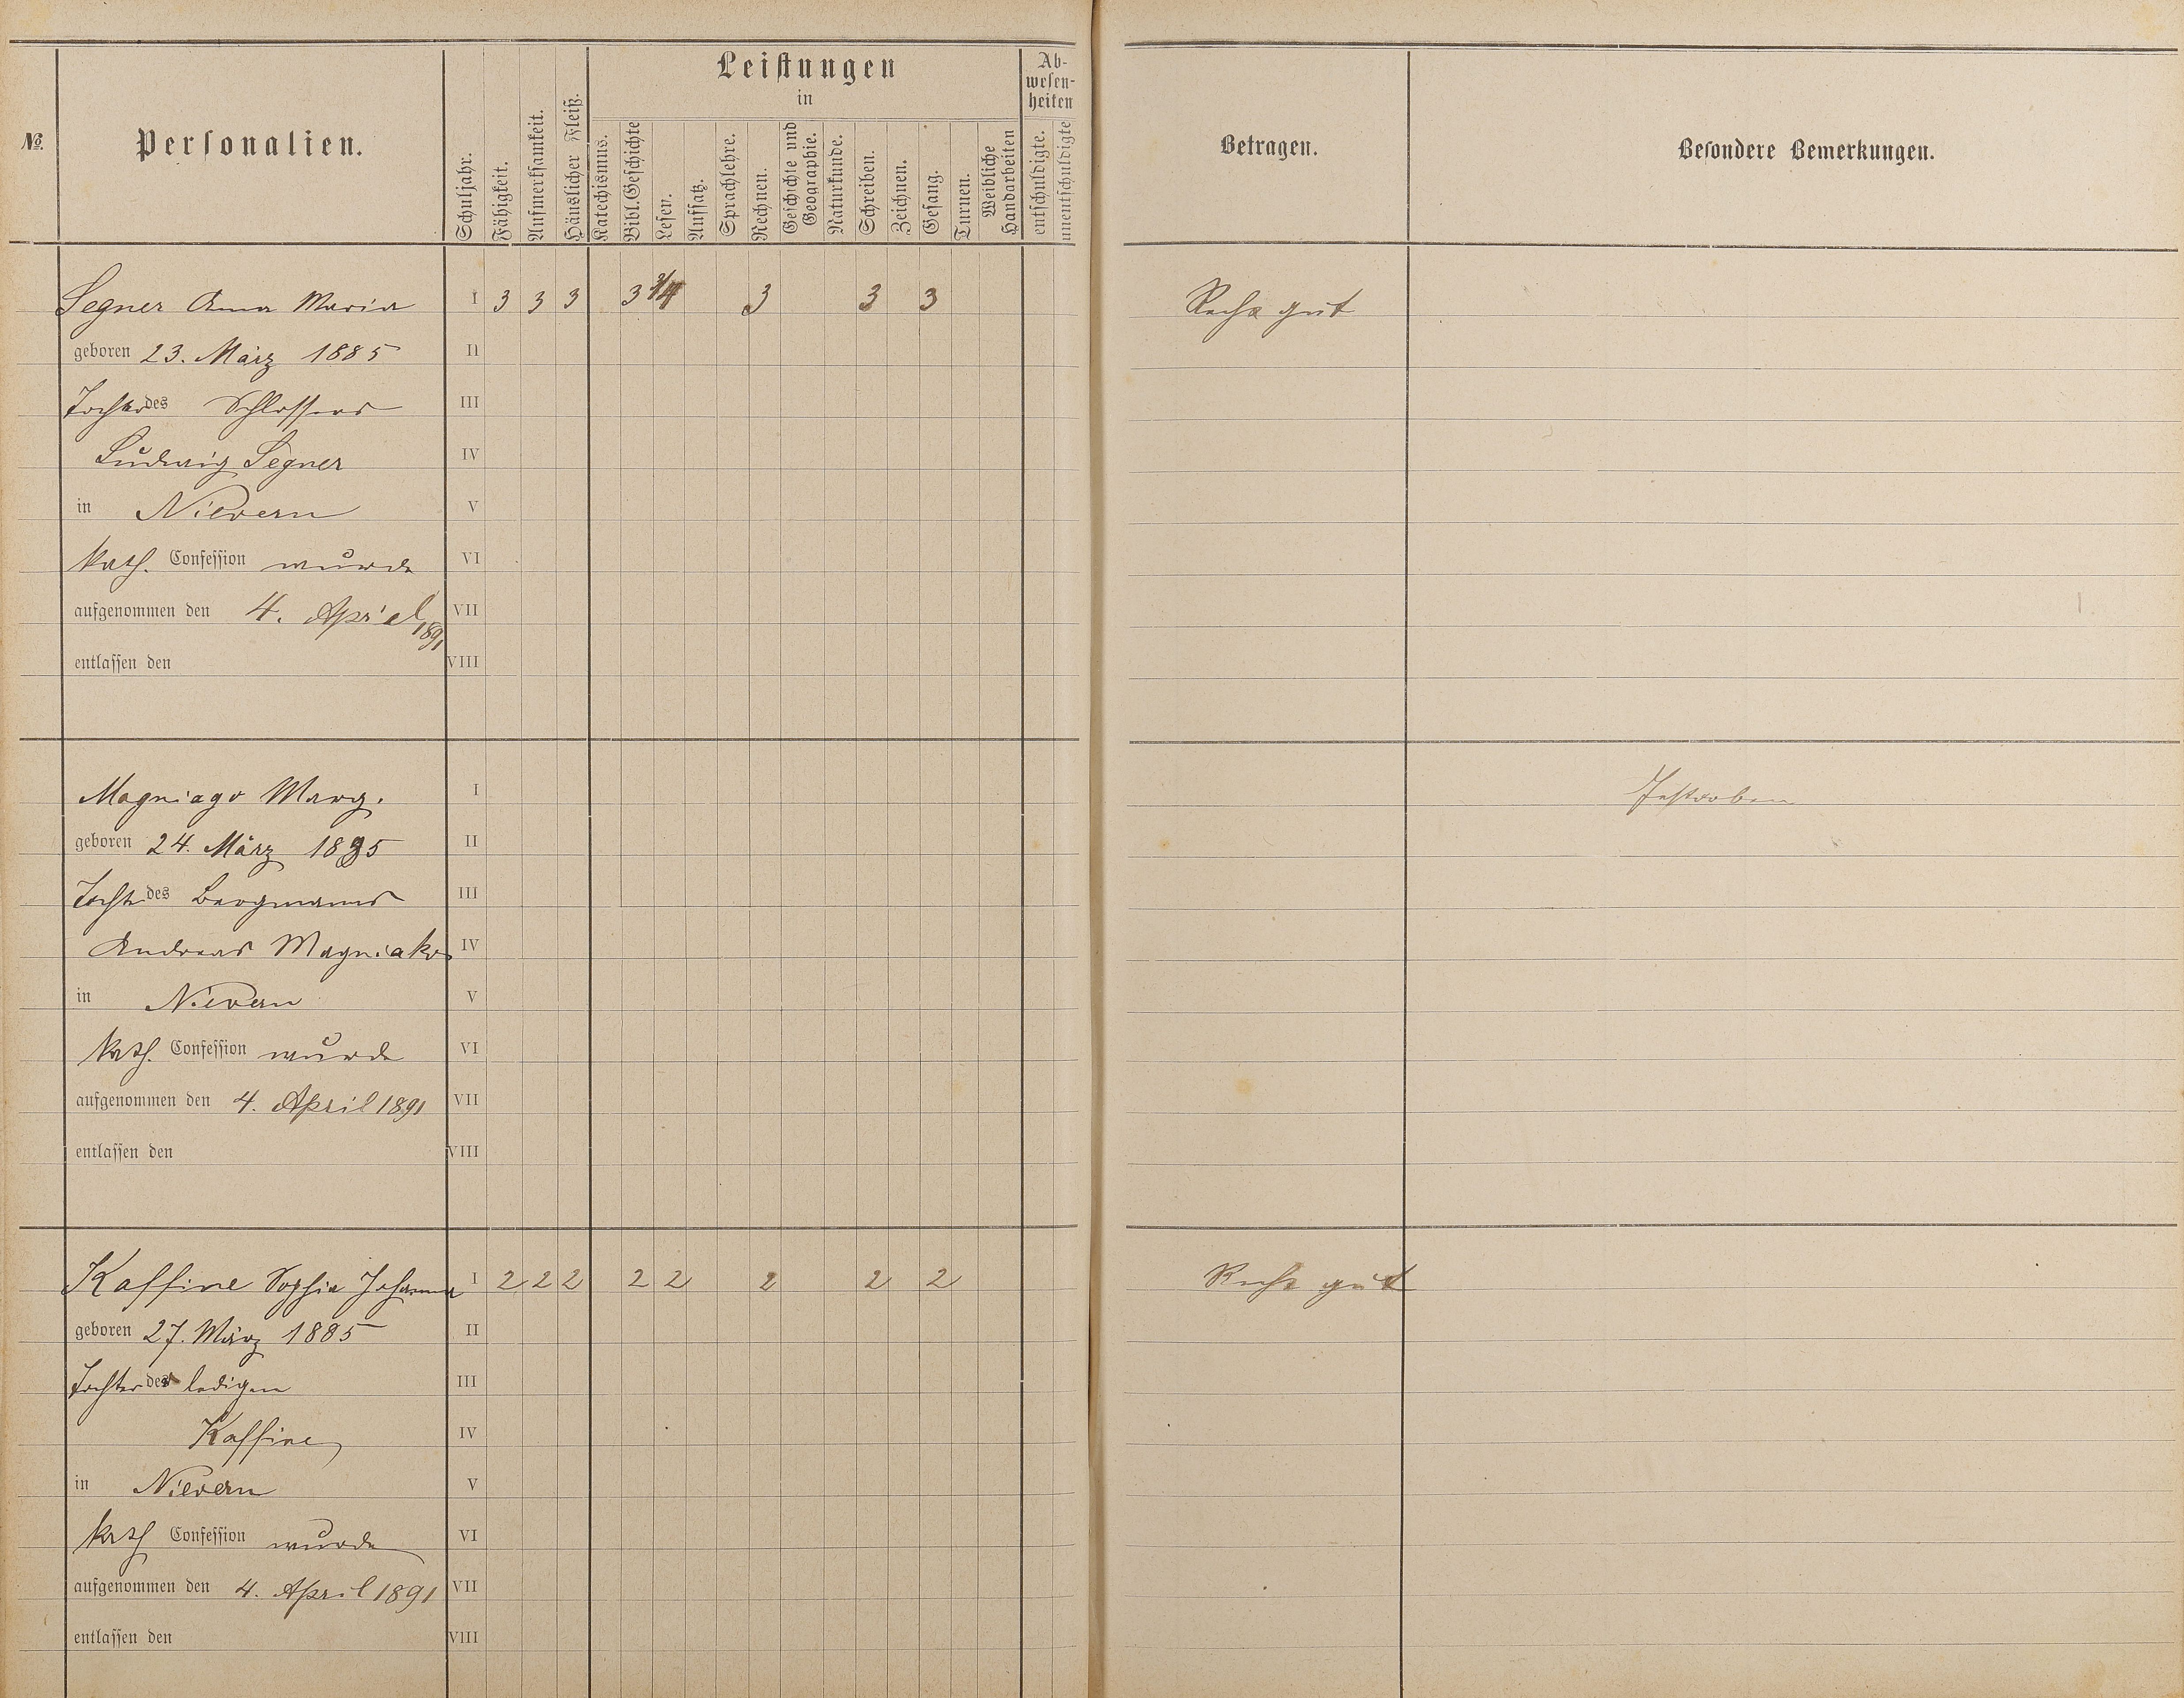 №
Personalien.
Schuljahr.
Fähigkeit.
Aufmerksamkeit.
Häuslicher Fleiß.
Leistungen
in
Katechismus.
Bibl. Geschichte
Lesen.
Aufsatz.
Sprachlehre.
Rechnen.
Geschichte und Geographie.
Naturkunde.
Schreiben.
Zeichnen.
Gesang.
Turnen.
Weibliche Handarbeiten
Ab-
wesen-
heiten
entschuldigte.
unentschuldigte
Betragen.
Besondere Bemerkungen.
Segner Anna Maria I 3 3 3 3 3/4 3 3 3 Recht gut
geboren 23. März 1885 II
Tochter des Schlossers III
Ludwig Segner IV
in Nievern V
kath. Confession wurde VI
aufgenommen den 4. April 1891 VII
entlassen den VIII
Magniago Marg. I Gestorben
geboren 24. März 1885 II
Tocht. des Bergmanns III
Andreas Magniako IV
in Nievern V
kath. Confession wurde VI
aufgenommen den 4. April 1891 VII
entlassen den VIII
Kaffine Sophia Johanna I 2 2 2 2 2 2 2 2 Recht gut
geboren 27. März 1885 II
Tochter der ledigen III
Kaffine IV
in Nievern V
kath Confession wurde VI
aufgenommen den 4. April 1891 VII
entlassen den VIII